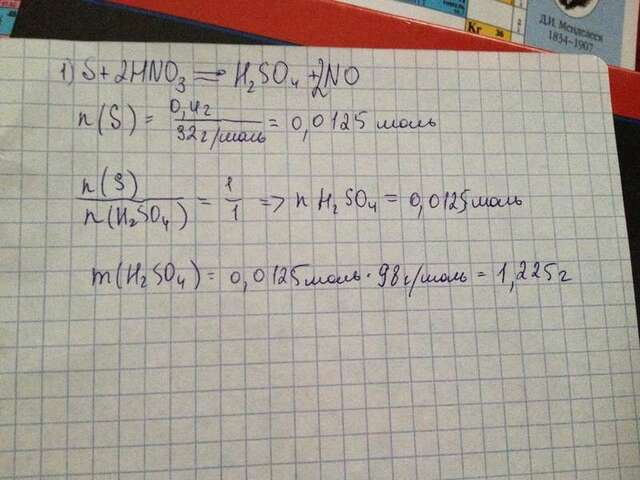 Д.И. Менделеев
1834–1907
Kr 36
1) S + 2HNO₃ = H₂SO₄ + 2NO
n(S) = 0,4г / 32г/моль = 0,0125 моль
n(S) / n(H₂SO₄) = 1/1 => n H₂SO₄ = 0,0125 моль
m(H₂SO₄) = 0,0125 моль · 98г/моль = 1,225г